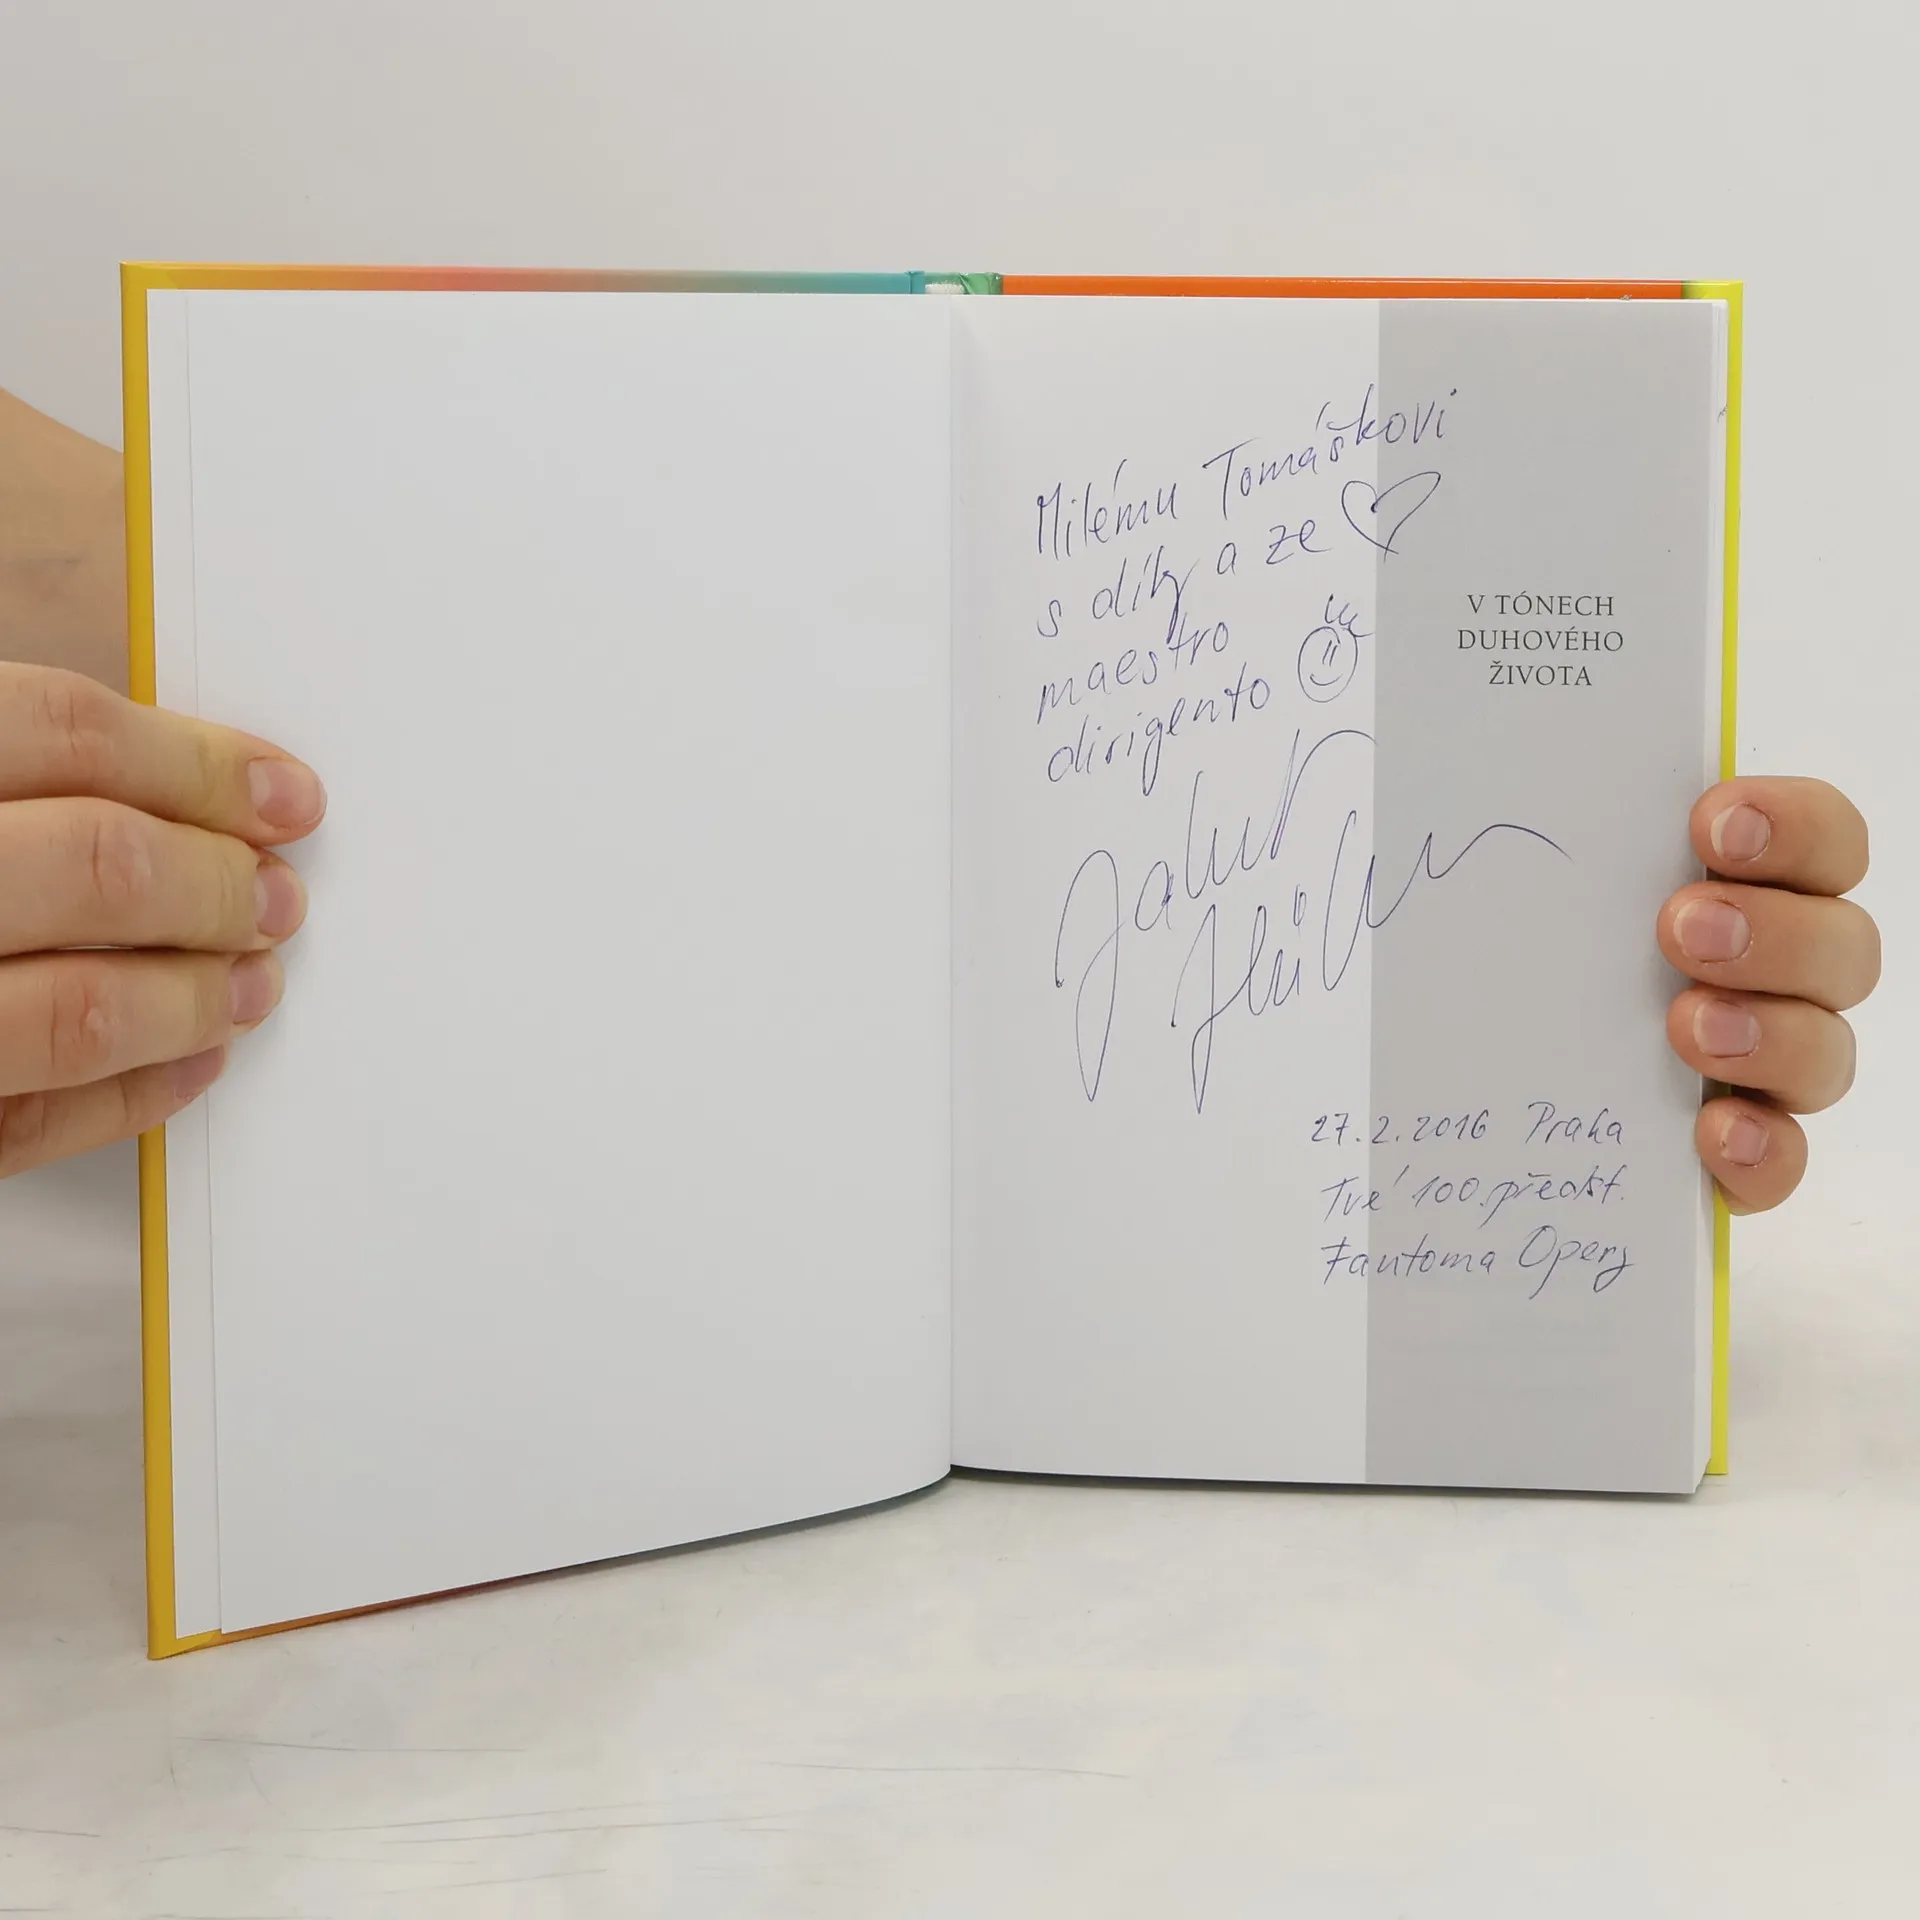 Milému Tomáškovi
s díky a ze
maestro
dirigento
Jakub
V TÓNECH
DUHOVÉHO
ŽIVOTA
27.2.2016 Praha
Tvé 100. předst.
Fantoma Opery